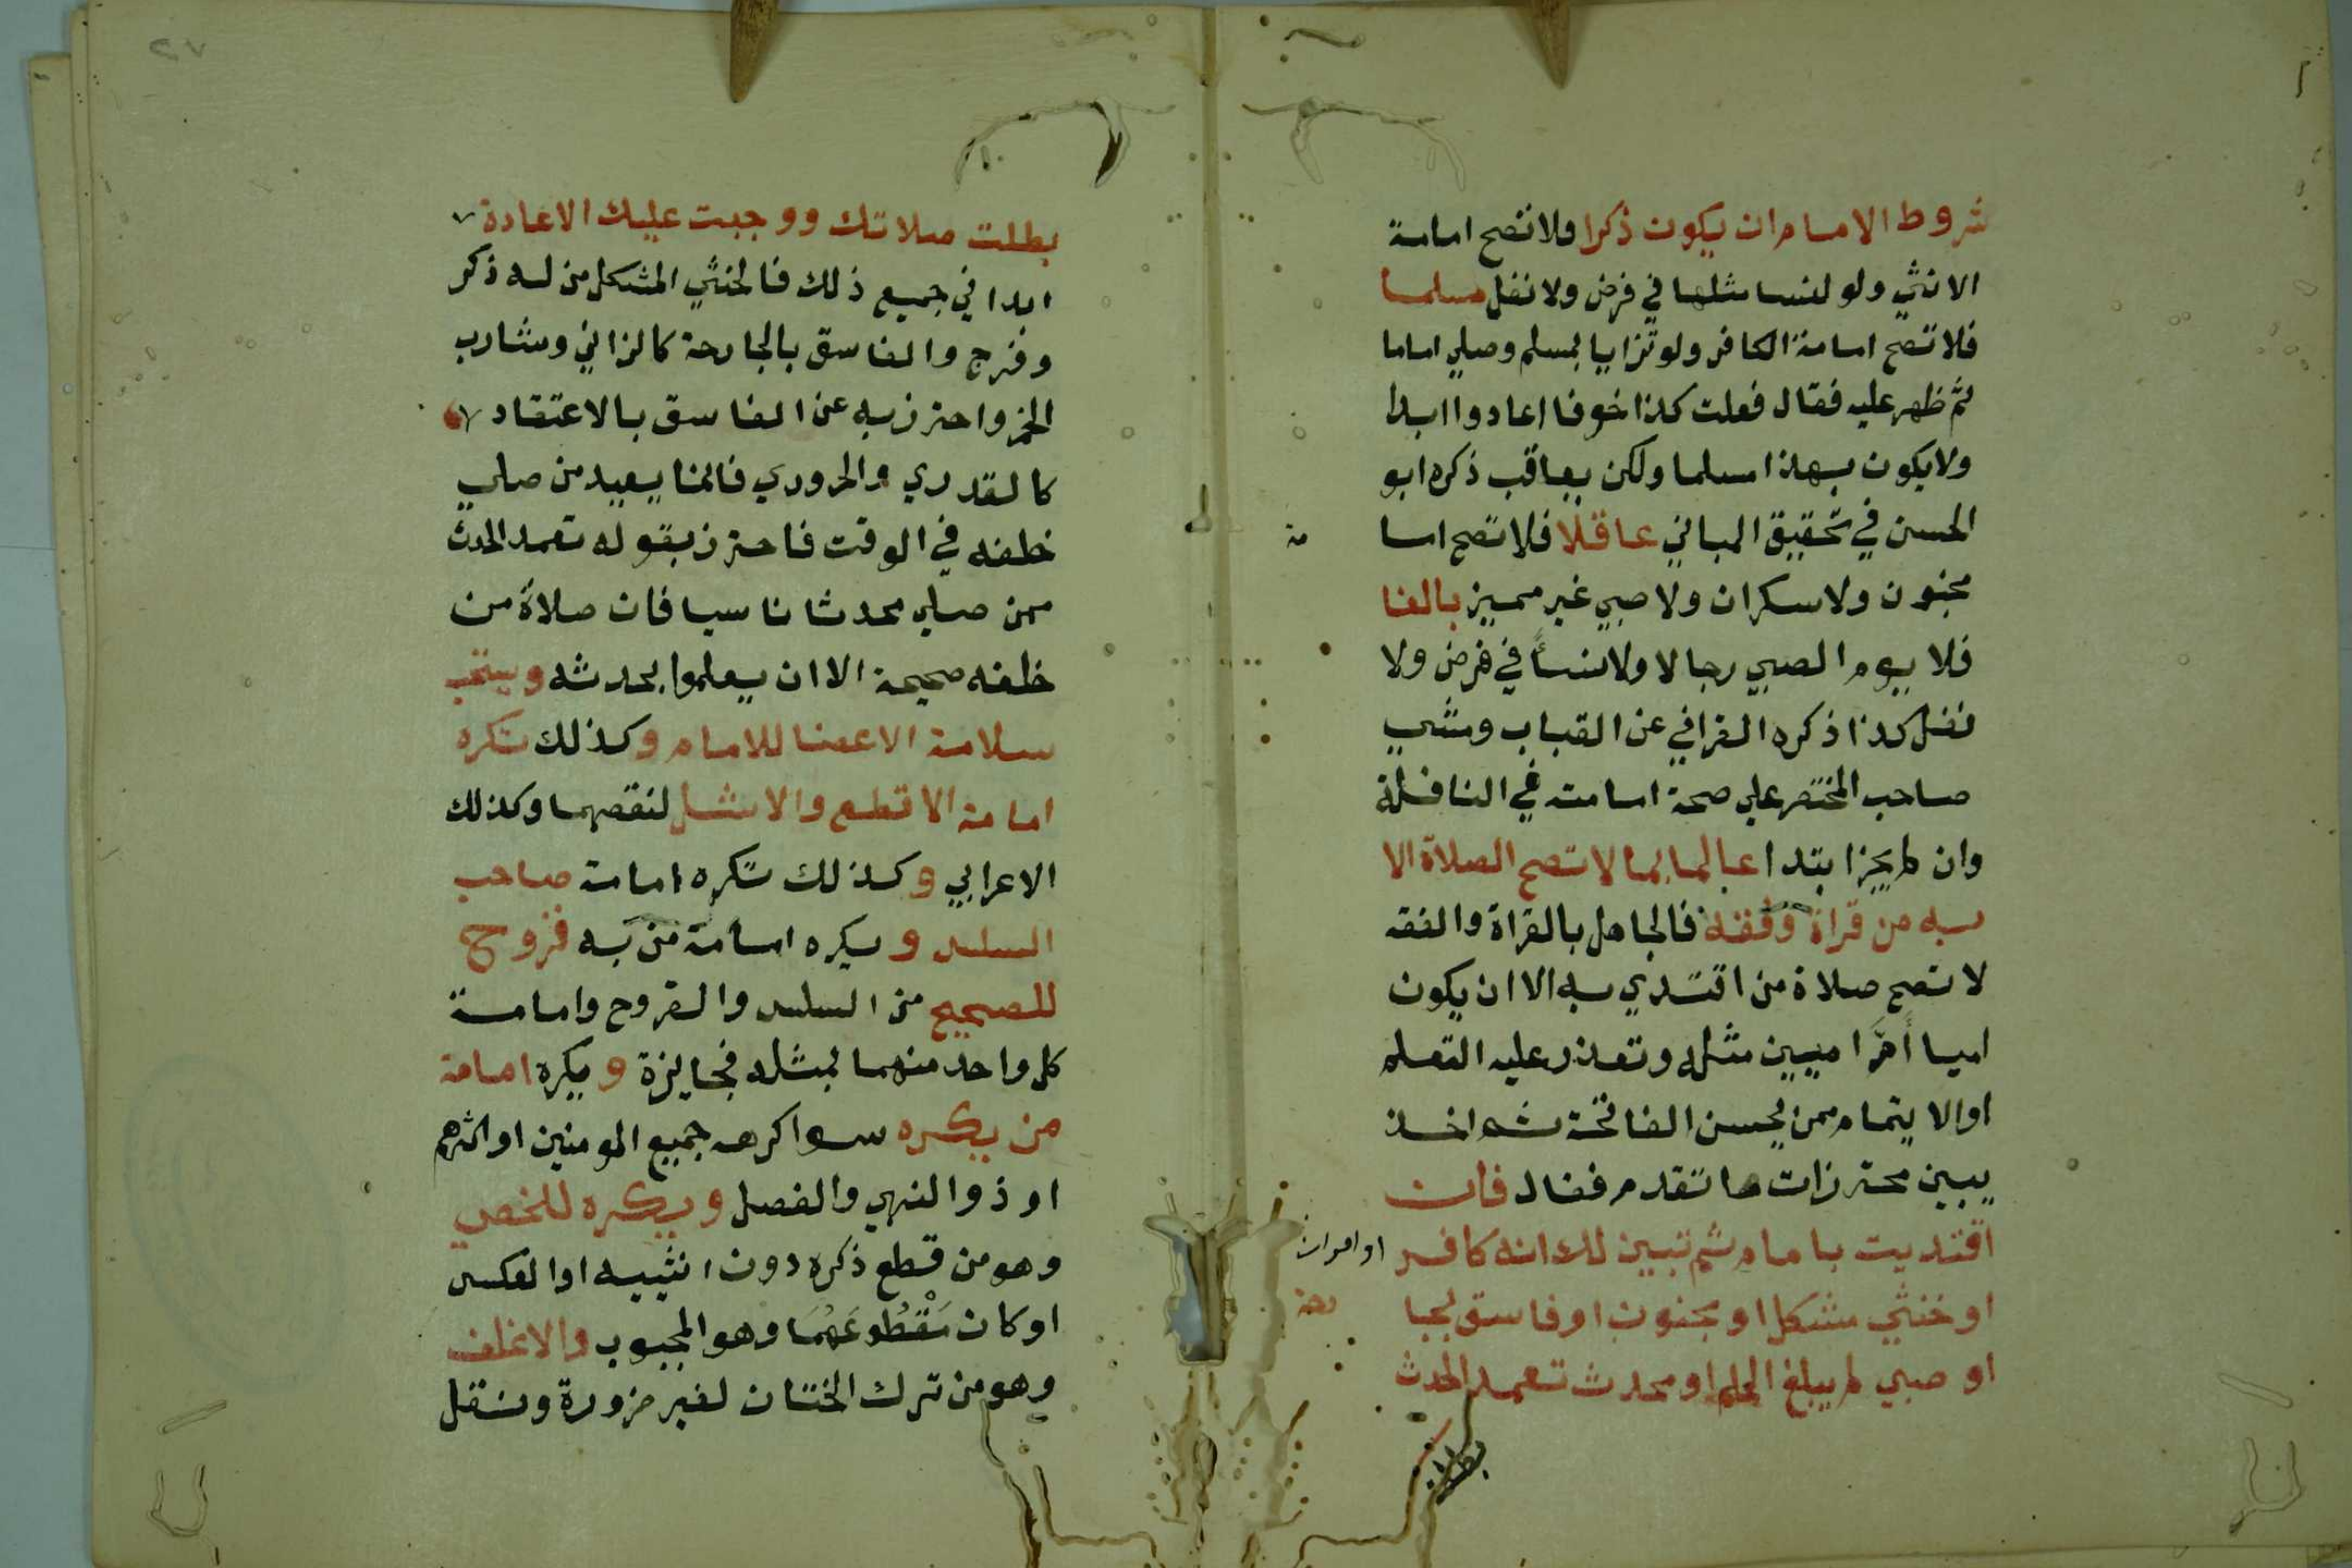 شروط الامام ان يكون ذكرا فلا تصح امامة
الانثي ولو لنسا مثلها في فرض ولا نفل مسلما
فلا تصح امامة الكافر ولو تزايا بمسلم وصلي اماما
ثم ظهر عليه فقال فعلت كذا خوفا اعادوا ابدا
ولا يكون بهذا مسلما ولكن يعاقب ذكره ابو
الحسن في تحقيق المباني عاقلا فلا تصح اما
مة
مجنون ولا سكران ولا صبي غير مميز بالغا
فلا يوم الصبي رجالا ولا نسأ في فرض ولا
نفل كذا ذكره القرافي عن القباب ومشي
صاحب المختصر علي صحة امامته في النافلة
وان لم يجز ابتدا عالما بما لا تصح الصلاة الا
به من قراة وفقه فالجاهل بالقراة والفقه
لا تصح صلاة من اقتدي به الا ان يكون
اميا أمَّ اميين مثله وتعذر عليه التعلم
او الايتمام ممن يحسن الفاتحة ثم اخذ
يبين محترزات ما تقدم فقال فان
اقتديت بامام ثم تبين لك انه كافر
او امراة
او خنثي مشكل او مجنون او فاسق بجا
رحة
او صبي لم يبلغ الحلم او محدث تعمد الحدث
بطلت
٢٧
بطلت صلاتك ووجبت عليك الاعادة
ابدا في جميع ذلك فالخنثي المشكل من له ذكر
وفرج والفاسق بالجارحة كالزاني وشارب
الخمر واحترز به عن الفاسق بالاعتقاد
كالقدري والحروري فانما يعيد من صلي
خلفه في الوقت فاحترز بقوله تعمد الحدث
ممن صلي محدثا ناسيا فان صلاة من
خلفه صحيحة الا ان يعلموا بحدثه ويستحب
سلامة الاعضا للامام وكذلك تكره
امامة الاقطع والاشل لنقصهما وكذلك
الاعرابي وكذلك تكره امامة صاحب
السلس ويكره امامة من به قروح
للصحيح من السلس والقروح وامامة
كل واحد منهما لمثله فجايزة ويكره امامة
من يكره سوا كرهه جميع المومنين او اكثرهم
او ذوا النهي والفضل ويكره للخصي
وهو من قطع ذكره دون انثييه او العكس
او كان مَقْطُوعَهُمَا وهو المجبوب والاغلف
وهو من ترك الختان لغير ضرورة ونقل